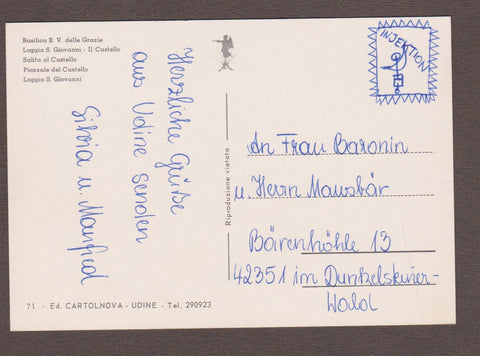 Basilica B. V. delle Grazie
Loggia S. Giovanni - Il Castello
Salita al Castello
Piazzale del Castello
Loggia S. Giovanni
Herzliche Grüße
aus Udine senden
Silvia u. Manfred
71 - Ed. CARTOLNOVA - UDINE - Tel. 290923
Riproduzione vietata
INJEKTION
An Frau Baronin
u. Herrn Mausbär
Bärenhöhle 13
42351 im Dunkelsteiner-
Wald